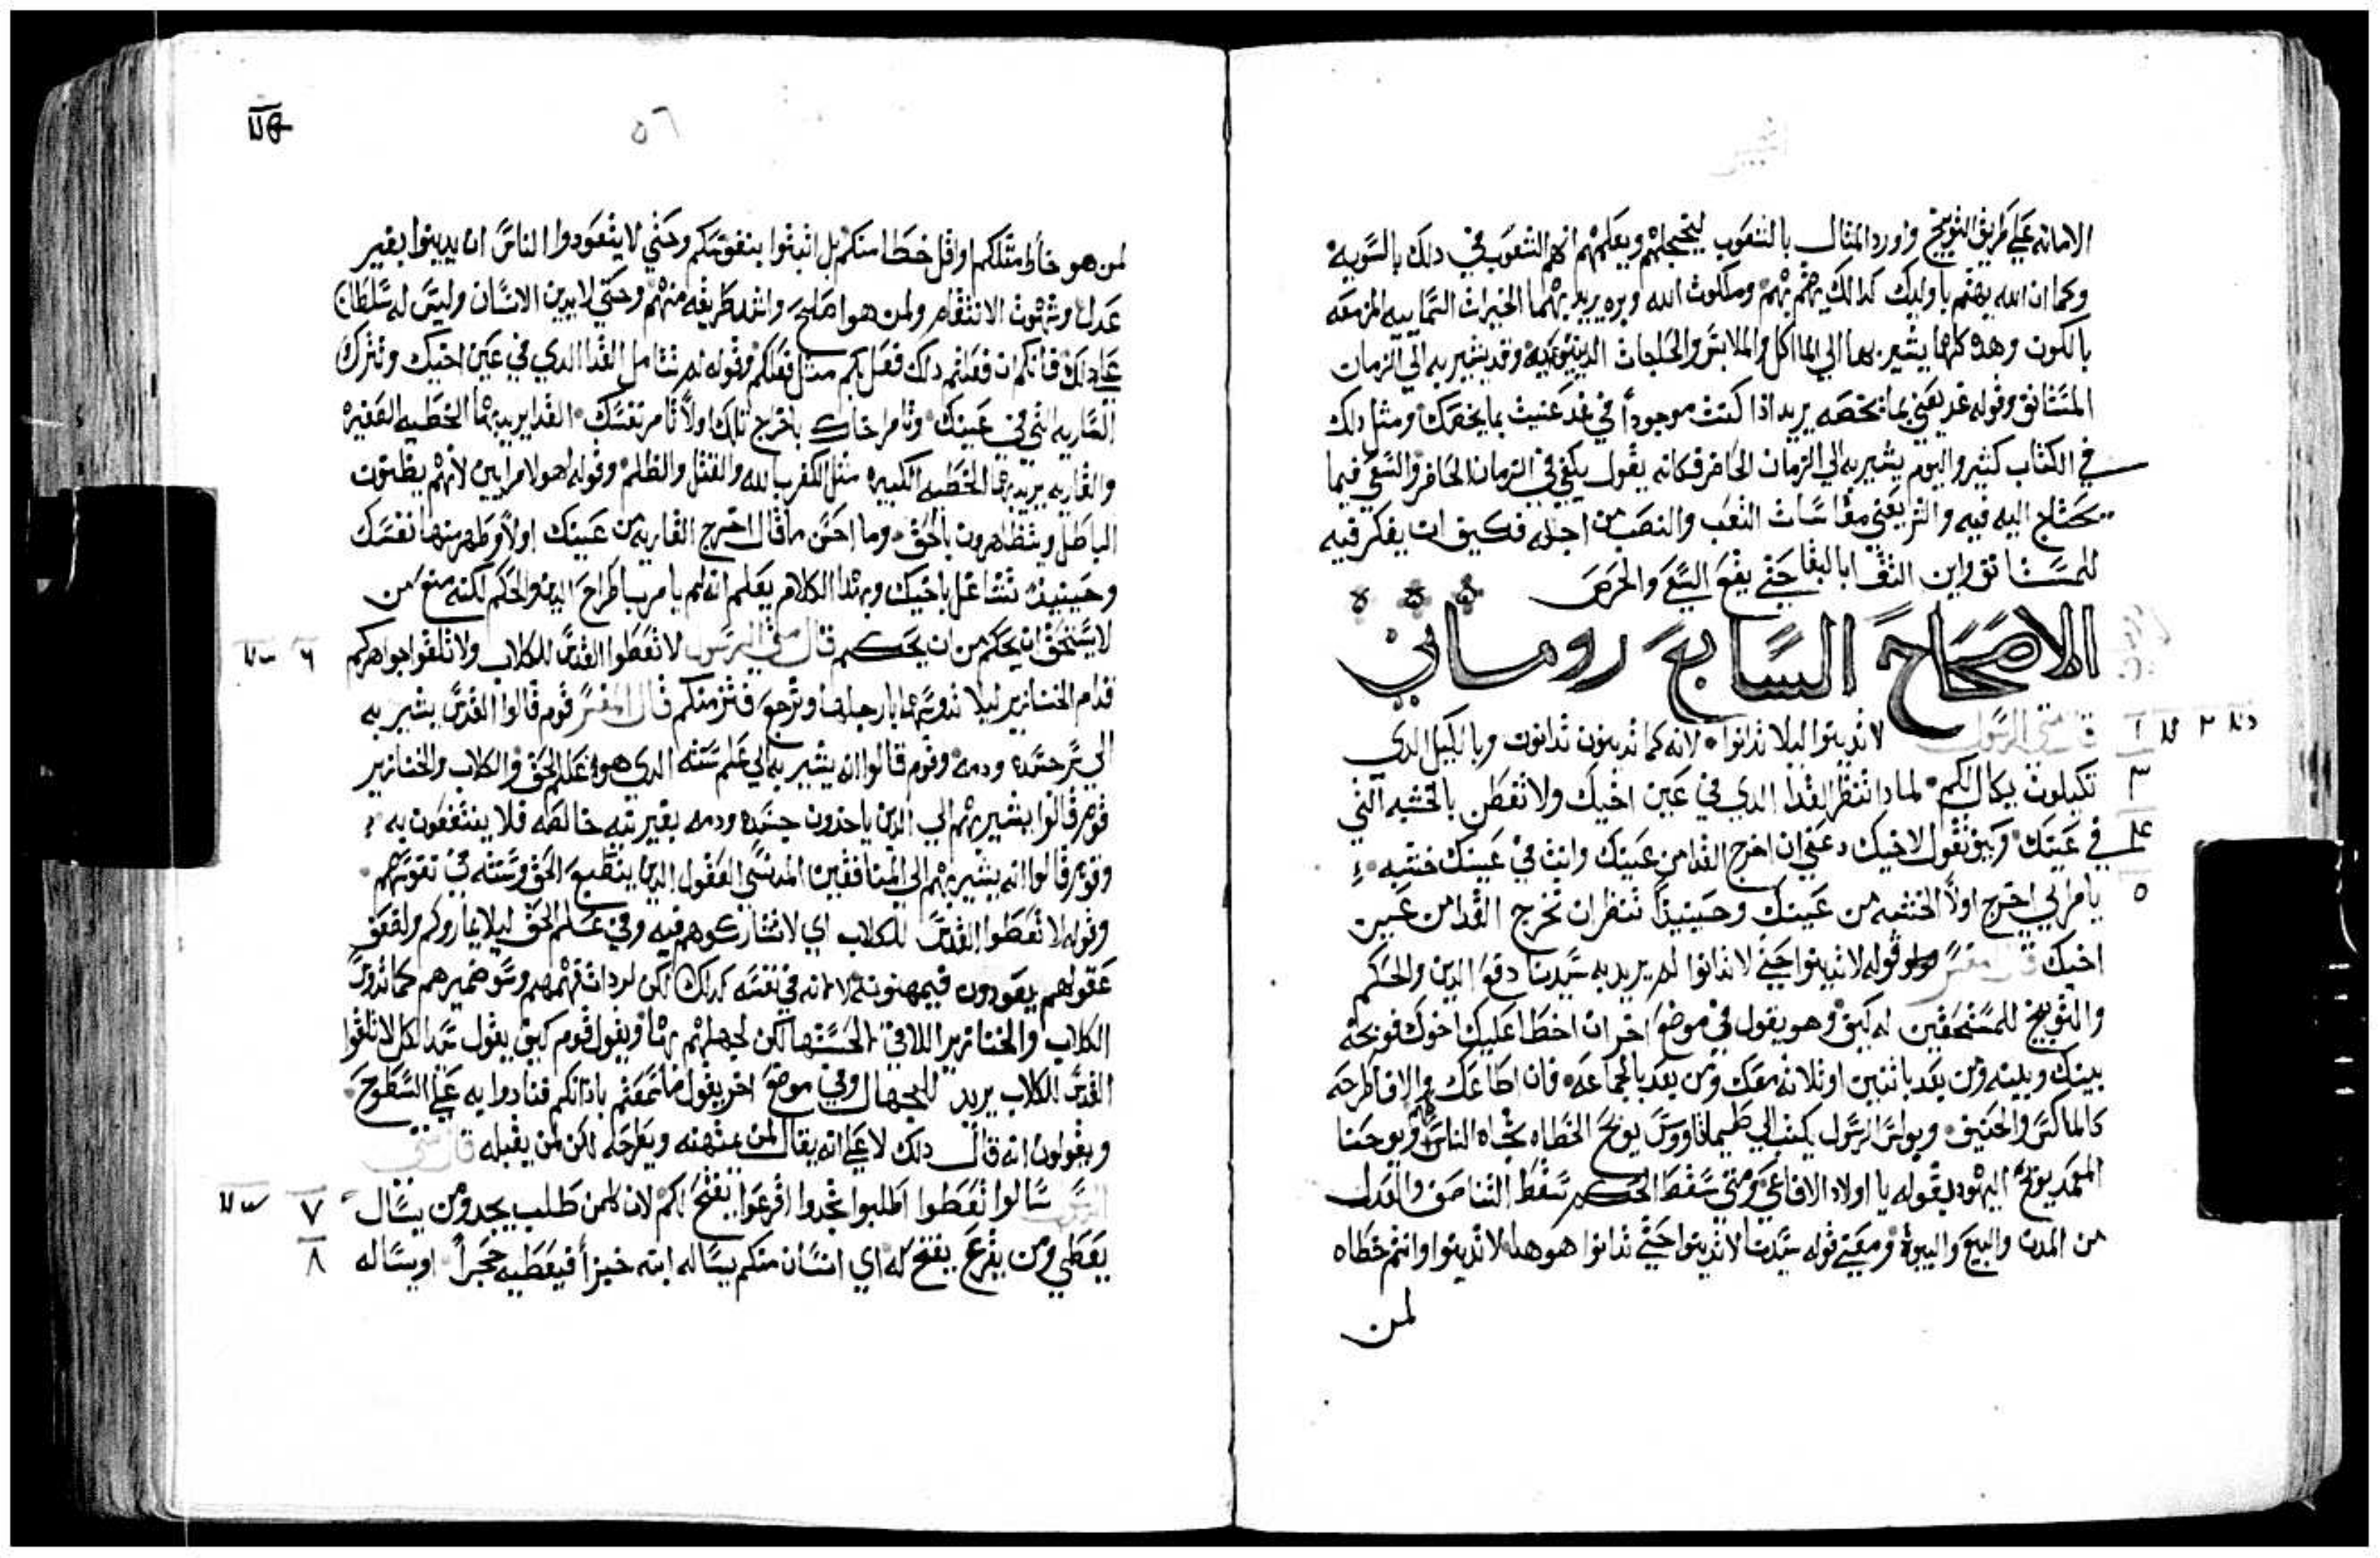 الامانه علي طريق التوبيخ واورد المثال بالشعوب ليخجلهم ويعلمهم انه لهم الشعوب في دلك بالسويه
وكما ان الله يهتم باوليك كدالك يهتم بهم وملكوت الله وبره يريد بهما الخيرات السماييه المزمعه
بالكون وهده كلها يشير بها الي الماكل والملابس والحاجات وقد يشير به الي الزمان
المستانف وقوله غد يعني بما يخصه يريد اذا كنت موجوداً في غد عنيت بما يخصك ومثل دلك
في الكتاب كثير واليوم يشير به الي الزمان الحاضر فكانه يقول يكفي في الزمان الحاضر والسعي فيما
يحتاج اليه فيه والشر يعني مقاسات التعب والنصب من اجله فكيف ان يفكر فيه
للمستانف واين الثقه بالبقا حتي يقع السعي والحرص
الاصحاح السابع روماني
قال متي الرسول لا تدينوا ليلا تدانوا لانه كما تدينون تدانون وبالكيل الدي
تكيلون يكال لكم لمادا تنظر القدا الدي في عين اخيك ولا تفطن بالخشبه التي
في عينك وكيف تقول لاخيك دعني ان اخرج القدا من عينك وانت في عينك خشبه
يامرايي اخرج اولاً الخشبه من عينك وحينيذٍ تنظر ان تخرج القدا من عين
اخيك قال المفسر قوله لا تدينوا حتي لا تدانوا لم يريد به سيدنا دفع الدين والحكم
والتوبيخ للمستحقين له كيف وهو يقول في موضع اخر ان اخطا عليك اخوك فوبخه
بينك وبينه ومن بعد باثنين او ثلاثه معك ومن بعد بالجماعه فان اطاعك والا فاطرحه
كالماكس والحنيف وبولس الرسول يكتب الي طيماثاووس يوبخ الخطاه تجاه الناس ويوحنا
المعمد يوبخ اليهود بقوله يا اولاد الافاعي ومتي سقط الحكم سقط التناصف والعدل
من المدن والبيع والبيوت ومعني قوله سيدنا لا تدينوا حتي تدانوا هو هدا لا تدينوا وانتم خطاه
لمن
٥٦
لمن هو خاطٍ مثلكم او اقل خطا منكم بل اثبتوا بنفوسكم وحتي لا يتعودوا الناس ان يدينوا بغير
عدل وشهوت الانتقام ولمن هو اصلح واشد طريقه منهم وحتي لا يدين الانسان وليس له سلطان
علي دلك فانكم ان فعلتم دلك فعل بكم مثل فعلكم وقوله لم تتامل القدا الدي في عين اخيك وتترك
الساريه التي في عينك وتامر اخاك باخراج تلك اولاً تامر نفسك القدا يريد بها الخطيه الصغيره
والساريه يريد بها الخطيه الكبيره مثل الكفر بالله والقتل والظلم وقوله لهولا مرايين لانهم يظنون
الباطل ويتظاهرون بالحق وما احسن ما قال اخرج الساريه من عينك اولاً وطهر منها نفسك
وحينيذٍ تتشاغل باخيك وبهدا الكلام يعلم انه لم يامر باطراح الدين والحكم لكنه منع من
لا يستحق ان يحكم من ان يحكم قال متي الرسول لا تعطوا القدس للكلاب ولا تلقوا جواهركم
قدام الخنازير ليلا تدوسها بارجلها وترجع فتزمنكم قال المفسر قوم قالوا القدس يشير به
الي سر جسده ودمه وقوم قالوا انه يشير به الي علم سنته الدي هو علم الحق والكلاب والخنازير
قوم قالوا يشير بهم الي الدين ياخدون جسده ودمه بغير نيه خالصه فلا ينتفعون به
وقوم قالوا انه يشير بهم الي المنافقين العقول الدين ينطبع الحق وسنته في نفوسهم
وقوله لا تعطوا القدس للكلاب اي لا تشاركوهم فيه وفي علم الحق ليلا يماروكم ولضعف
عقولهم يعودون فيمهنونه لا انه في نفسه كدلك لكن لرداة فهمهم وسو ضميرهم كما تدوس
الكلاب والخنازير اللالي لا لخستها لكن لجهلهم بها ويقول قوم كيف يقول سيد الكل لا تلقوا
القدس للكلاب يريد للجهال وفي موضع اخر يقول ما سمعتم بادانكم فنادوا به علي السطوح
ويقولون انه قال دلك لا علي انه يقال لمن يمتهنه ويطرحه لكن لمن يقبله قال متي
الرسول سالوا تعطوا اطلبوا تجدوا اقرعوا يفتح لكم لان كلمن طلب يجد ومن يسال
يعطي ومن يقرع يفتح له اي انسان منكم يساله ابنه خبزاً فيعطيه حجراً او يساله